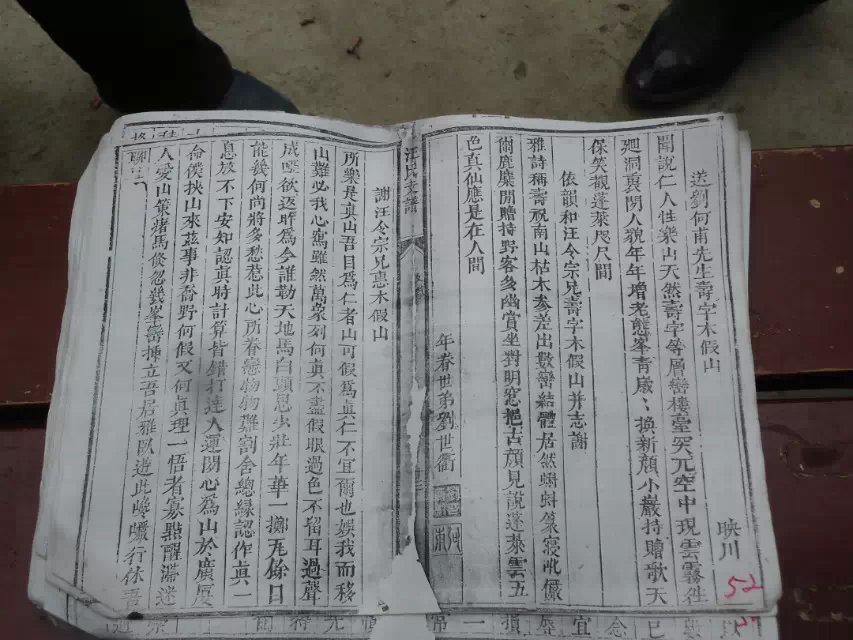 送劉何甫先生壽字木假山
映川
聞說仁人性樂山天然壽字等層巒樓臺突兀空中現雲霧往
廻洞裏閑人貌年年增老態峯青歲〻換新顏小巖持贈歌天
保笑觀蓬萊咫尺間
依韻和汪令宗兄壽字木假山并志謝
雅詩稱壽祝南山枯木參差出數巒結體居然蝌蚪篆寢訛儼
爾鹿麋閒贈持野客多幽賞坐對明窓把古顏見說蓬萊雲五
色真仙應是在人間
年眷世弟劉世衢
汪氏文譜
謝汪令宗兄惠木假山
所樂是真山吾目為仁者山可假為真仁不宜爾也娛我而移
山難必我心寫雖然萬象列何真不盡假眼過色不留耳過聲
成啞欲追昨為今誰勒天地馬白頭思少壯年華一擲无餘日
能幾何尚將多愁惹此心所眷戀物物難割舍總緣認作真一
息放不下安知認真時計算皆錯打達人運閑心為山於廣厦
俞僕挾山來茲事非喬野何假又何真理一悟者寡點醒滯迷
人愛山策猪馬倏忽幾峯巒挿立吾居雅臥遊此嶮巇行休吾
聊
52